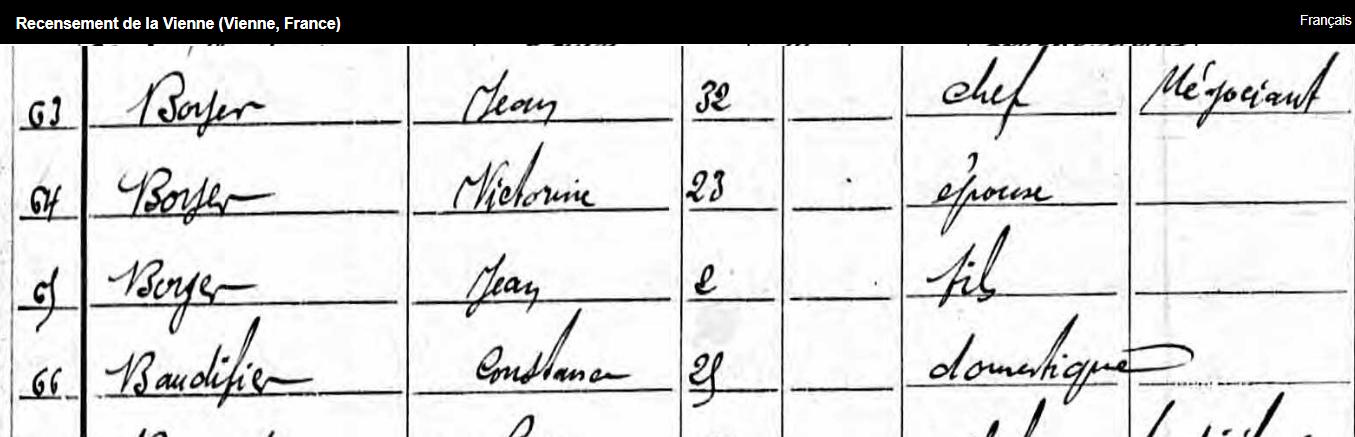 Recensement de la Vienne (Vienne, France) Français
63 Boyer Jean 32 chef Négociant
64 Boyer Victorine 23 épouse
65 Boyer Jean 2 fils
66 Baudifier Constance 25 domestique